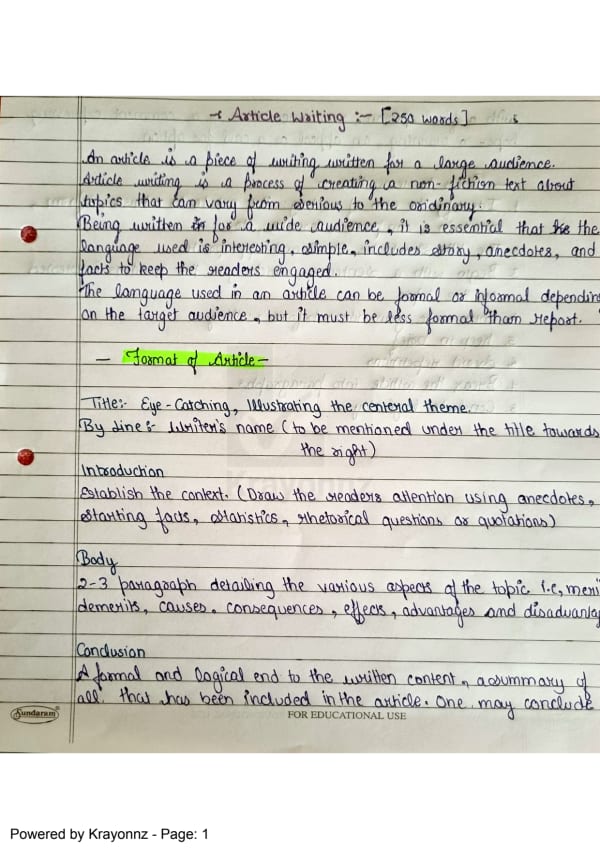 Article Writing :- [250 words]
An article is a piece of writing written for a large audience.
Article writing is a process of creating a non-fiction text about
topics that can vary from serious to the oridinary.
Being written for a wide audience, it is essential that the
language used is interesting, simple, includes story, anecdotes, and
facts to keep the readers engaged.
The language used in an article can be formal or informal dependin
on the target audience, but it must be less formal tham report.
- Format of Article -
Title:- Eye-Catching, Illustrating the centeral theme.
By Line :- Writer's name (to be mentioned under the title towards
the right)
Krayonnz
Introduction
Establish the context. (Draw the readers attention using anecdotes,
starting facts, statistics, rhetorical questions or quotations)
Body
2-3 paragraph detailing the various aspects of the topic i.e, meri
demerits, causes, consequences, effects, advantages and disadvantag
Conclusion
A formal and logical end to the written content, a summary of
all that has been included in the article. One may conclude
Sundaram
FOR EDUCATIONAL USE
Powered by Krayonnz - Page: 1